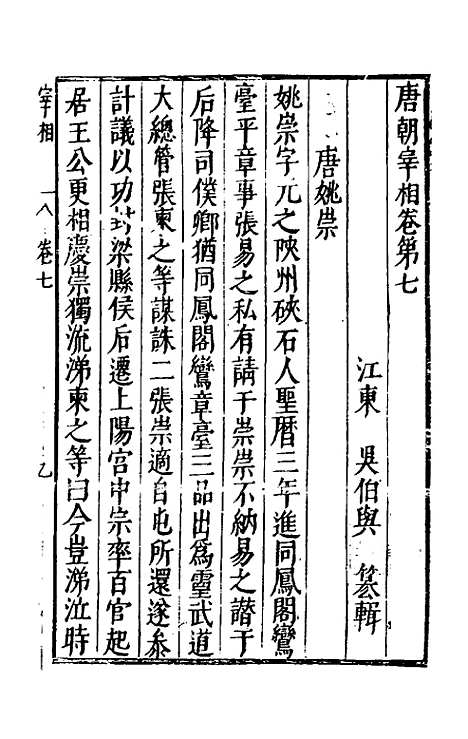 唐朝宰相卷第七
江東 吳伯與 篡輯
唐姚崇
姚崇字元之陝州硤石人聖曆三年進同鳳閣鸞
臺平章事張易之私有請于崇崇不納易之譖于
后降司僕卿猶同鳳閣鸞章臺三品出爲靈武道
大總管張柬之等謀誅二張崇適自屯所還遂叅
計議以功封梁縣侯后遷上陽宮中宗率百官起
居王公更相慶崇獨流涕柬之等曰今豈涕泣時
宰相 卷七